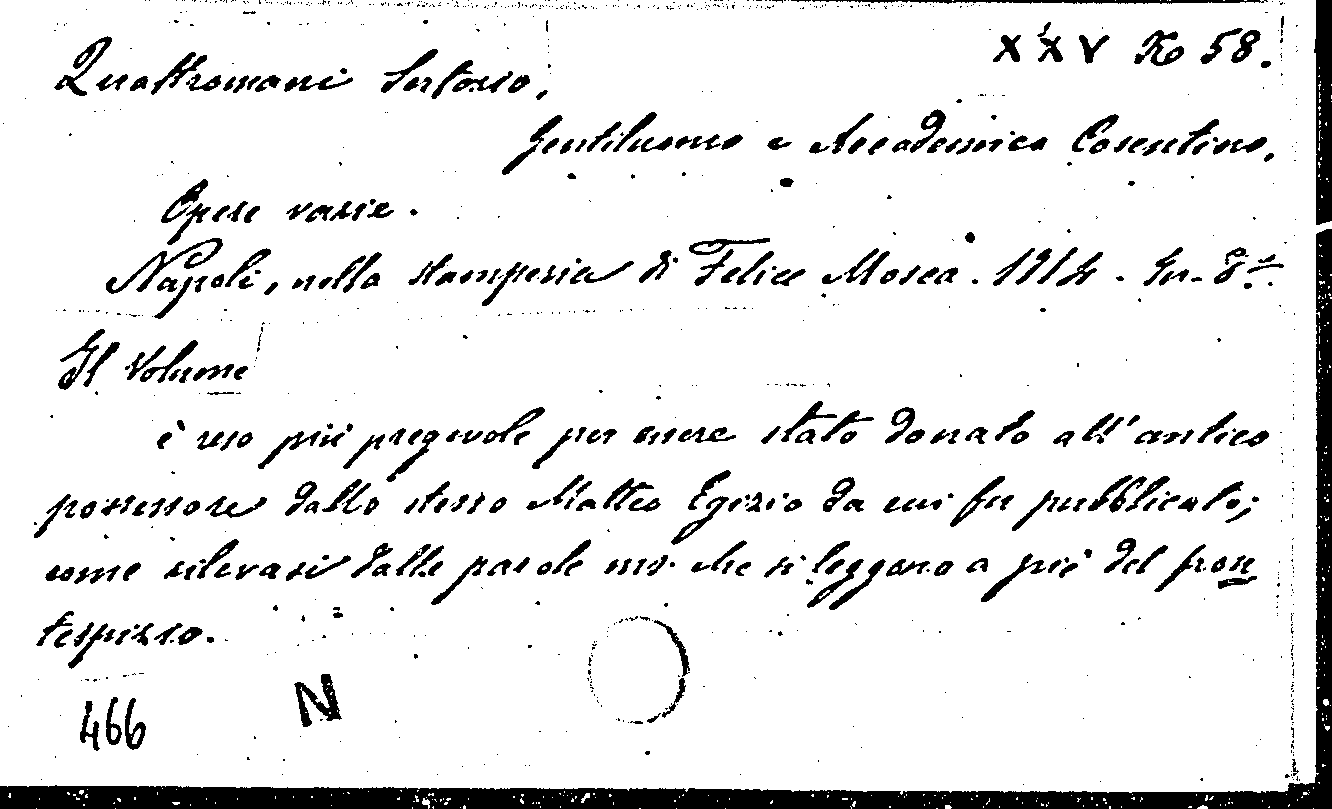 XXV K 58.
Quattromani Sertorio,
Gentiluomo e Accademico Cosentino.
Opere varie.
Napoli, nella stamperia di Felice Mosca. 1714. In-8.°
Il Volume
è reso più pregevole per essere stato donato all'antico
possessore dallo stesso Matteo Egizio da cui fu pubblicato;
come rilevasi dalle parole ms. che si leggono a piè del fron
tespizio.
466 N